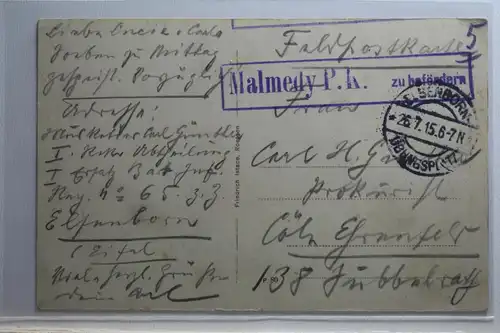 Liebe Onkel Carl
Soeben zu Mittag
gespeist. Vorzüglich
Adresse:
Musketier Carl Günther
I. Reker Abtheilung
I Ersatz Bat. Inf.
Reg. No 65. z. Z.
Elsenborn
(Eifel
Viele herzl. Grüße
dein Carl
Feldpostkarte
5
Malmedy P.K. zu befördern
Frau
ELSENBORN
* 26.7.15.6-7N
ÜBUNGSPLATZ
Carl H. Günther
Prokurist
Cöln Ehrenfeld
138 Subbelrath